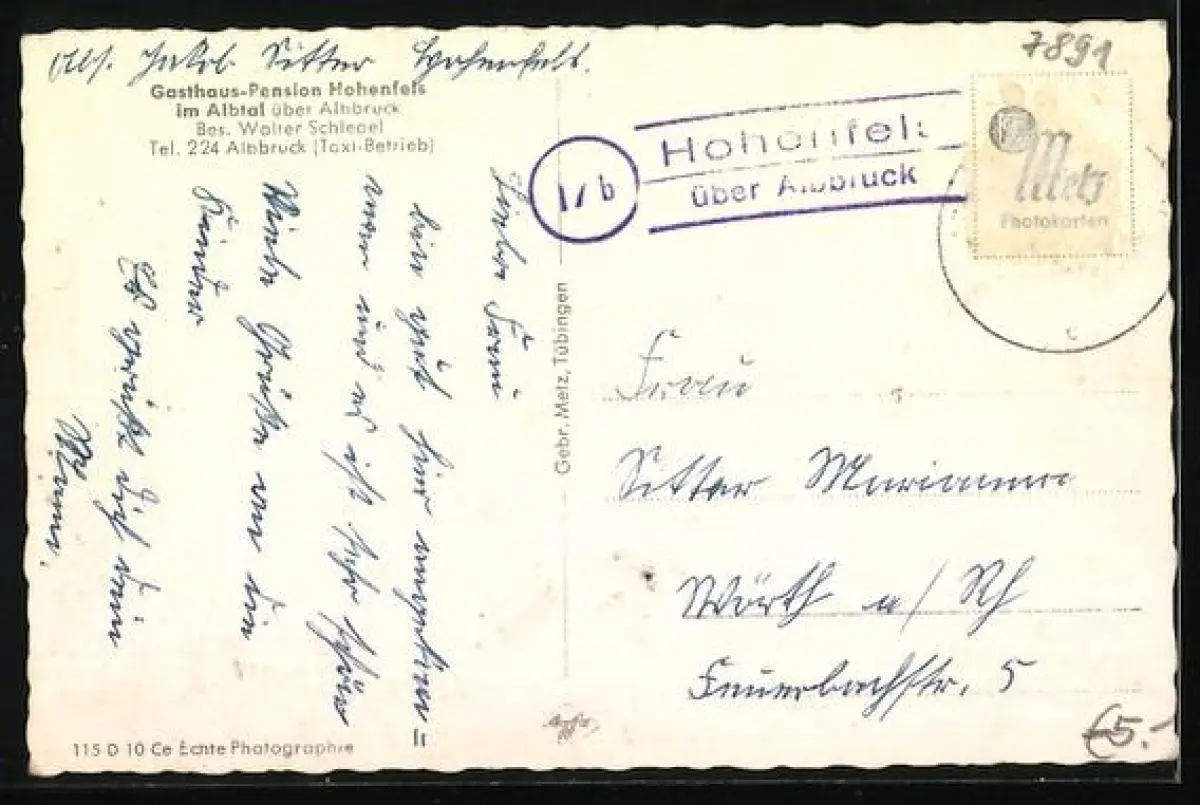 Abs. Jakob Sitter Hohenfels.
Gasthaus-Pension Hohenfels
im Albtal über Albbruck
Bes. Walter Schlegel
Tel. 224 Albbruck (Taxi-Betrieb)
7891
17b
Hohenfels
über Albbruck
Metz
Photokarten
Liebe Frau
bin gut hier angekom=
men und es ist sehr schön
Viele Grüße an die
Kinder
Es grüßt dich dein
Mann.
Gebr. Metz, Tübingen
Frau
Sitter Marianna
Wörth a/Rh
Feuerbachstr. 5
115 D 10 Ce Echte Photographie
€5.-